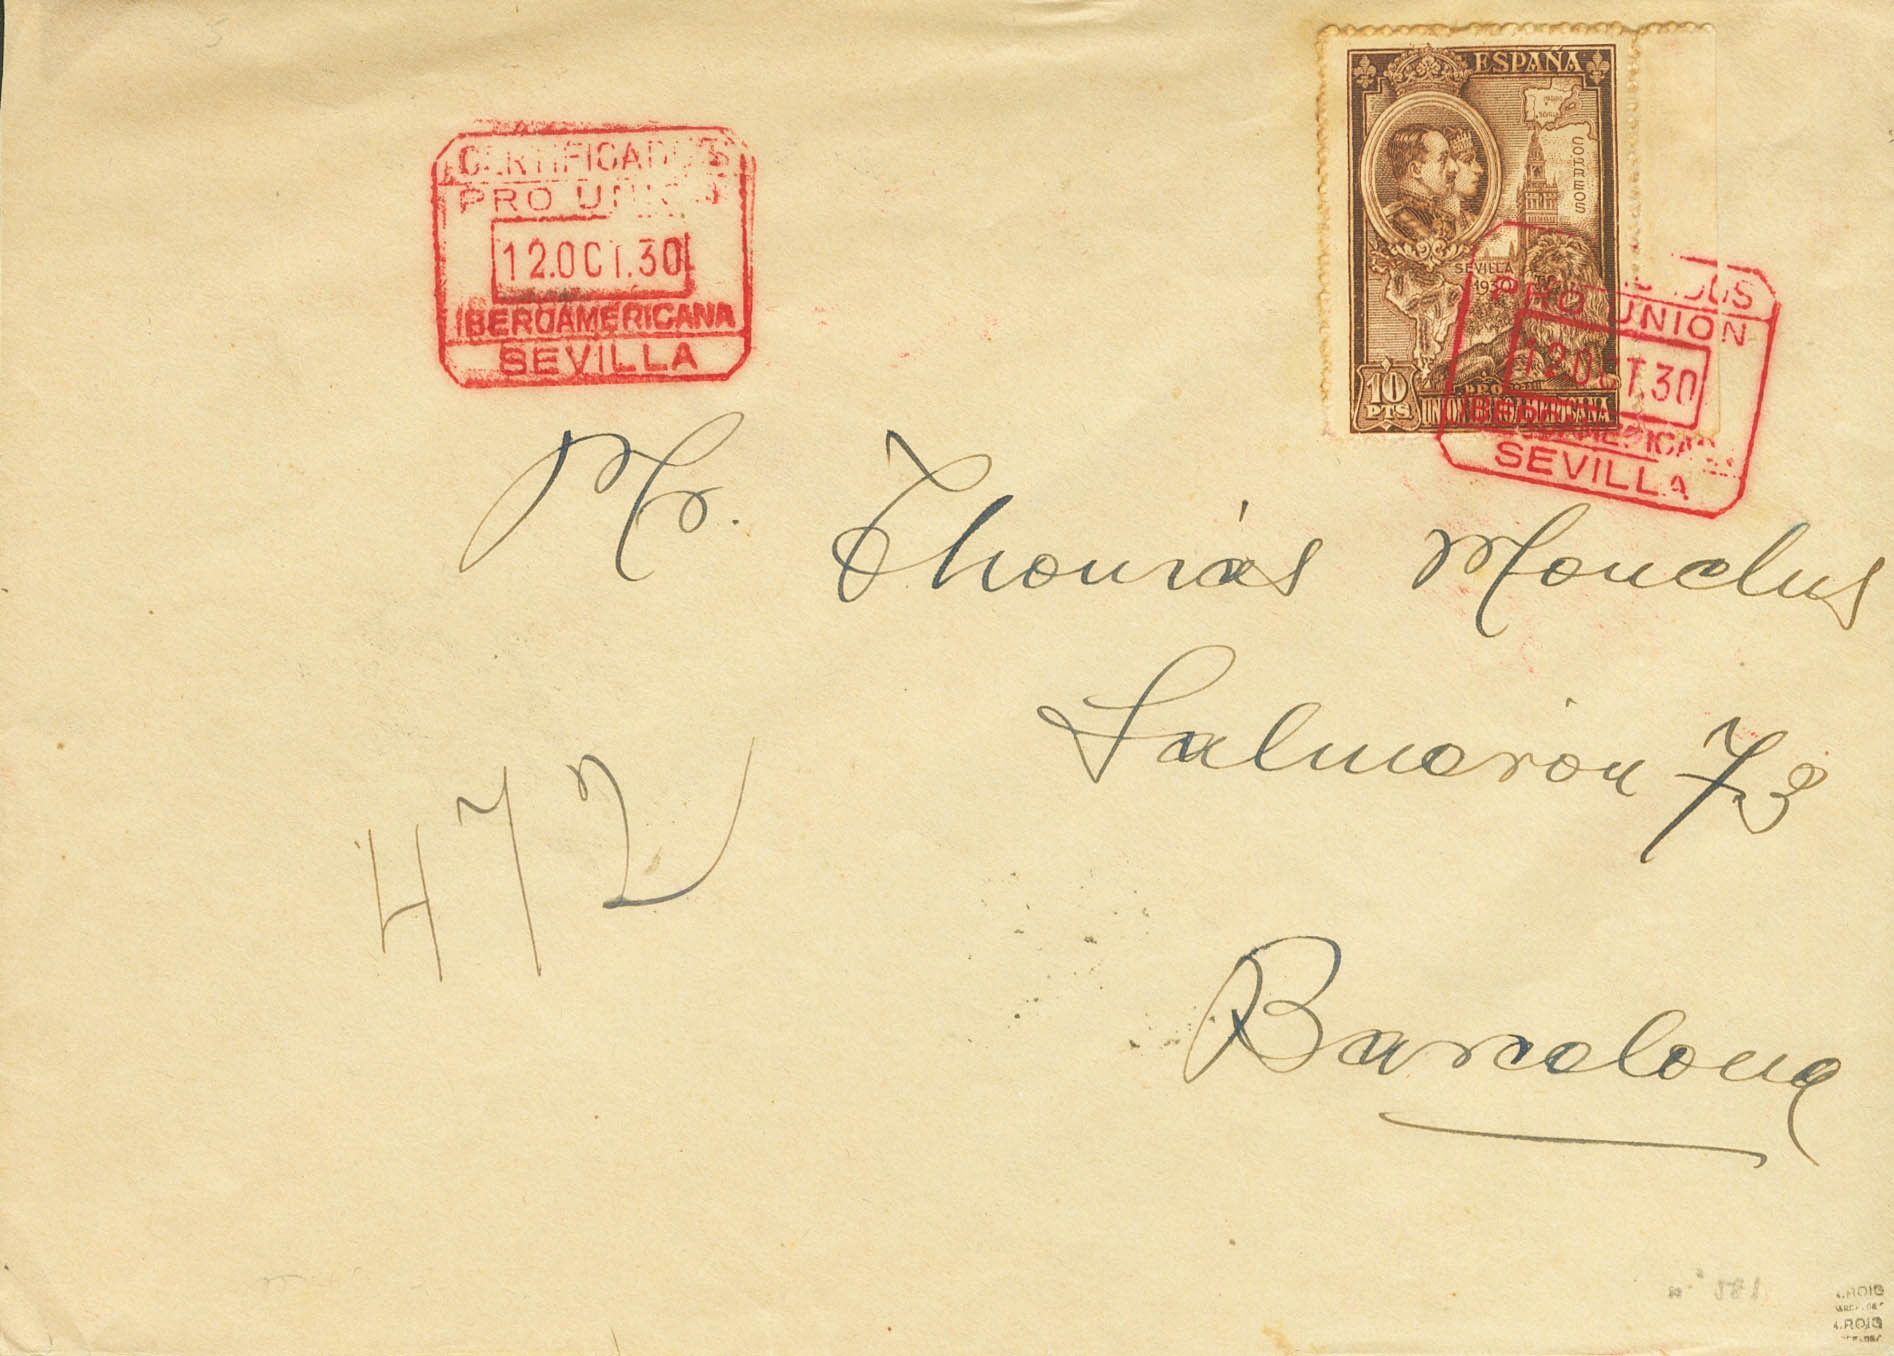 5
CERTIFICADOS
PRO UNION
12.OCT.30
IBEROAMERICANA
SEVILLA
ESPAÑA
CORREOS
SEVILLA
1930
10
PTS.
PRO
UNION IBEROAMERICANA
PRO UNION
12 OCT.30
IBEROAMERICANA
SEVILLA
Mr. Thomás Monclus
Salmerón 73
472
Barcelona
A.ROIG
A.ROIG